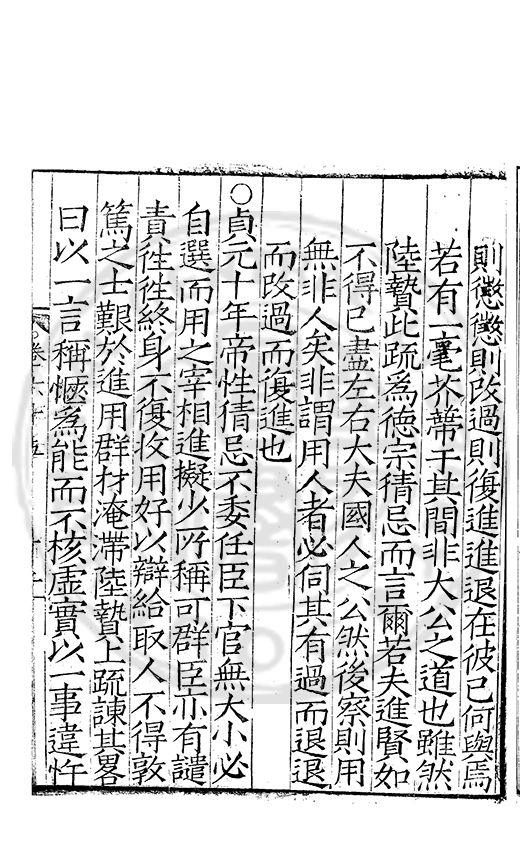 則懲懲則改過則復進進退在彼已何與焉
若有一毫芥蔕于其間非大公之道也雖然
陸贄此疏爲德宗猜忌而言爾若夫進賢如
不得已盡左右大夫國人之公然後察則用
無非人矣非謂用人者必伺其有過而退退
而改過而復進也
○貞元十年帝性猜忌不委任臣下官無大小必
自選而用之宰相進擬少所稱可群臣亦有譴
責往往終身不復收用好以辯給取人不得敦
篤之士艱於進用群材淹滯陸贄上疏諫其畧
曰以一言稱愜爲能而不核虛實以一事違忤
卷六十五